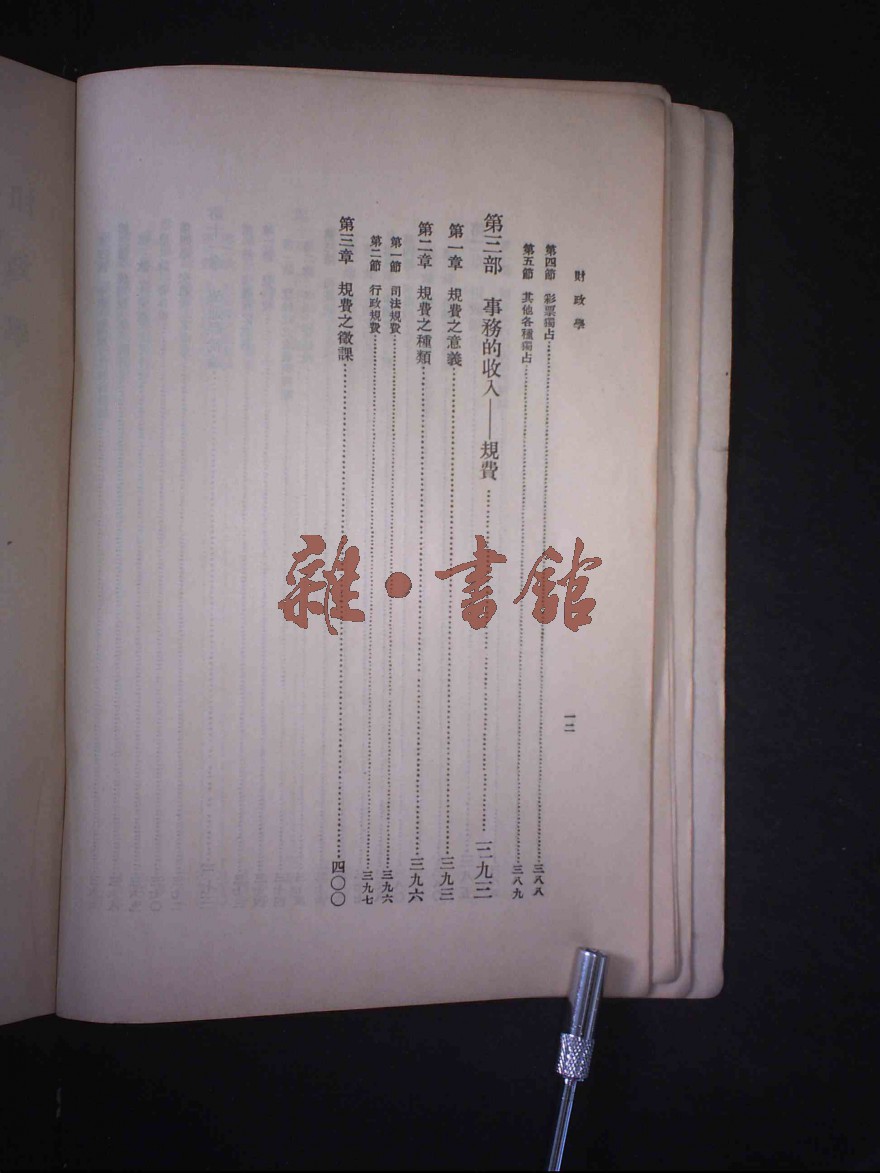 財政學
一二
第四節 彩票獨占……三八八
第五節 其他各種獨占……三八九
第三部 事務的收入——規費……三九三
第一章 規費之意義……三九三
第二章 規費之種類……三九六
第一節 司法規費……三九六
第二節 行政規費……三九七
第三章 規費之徵課……四〇〇
雜·書館